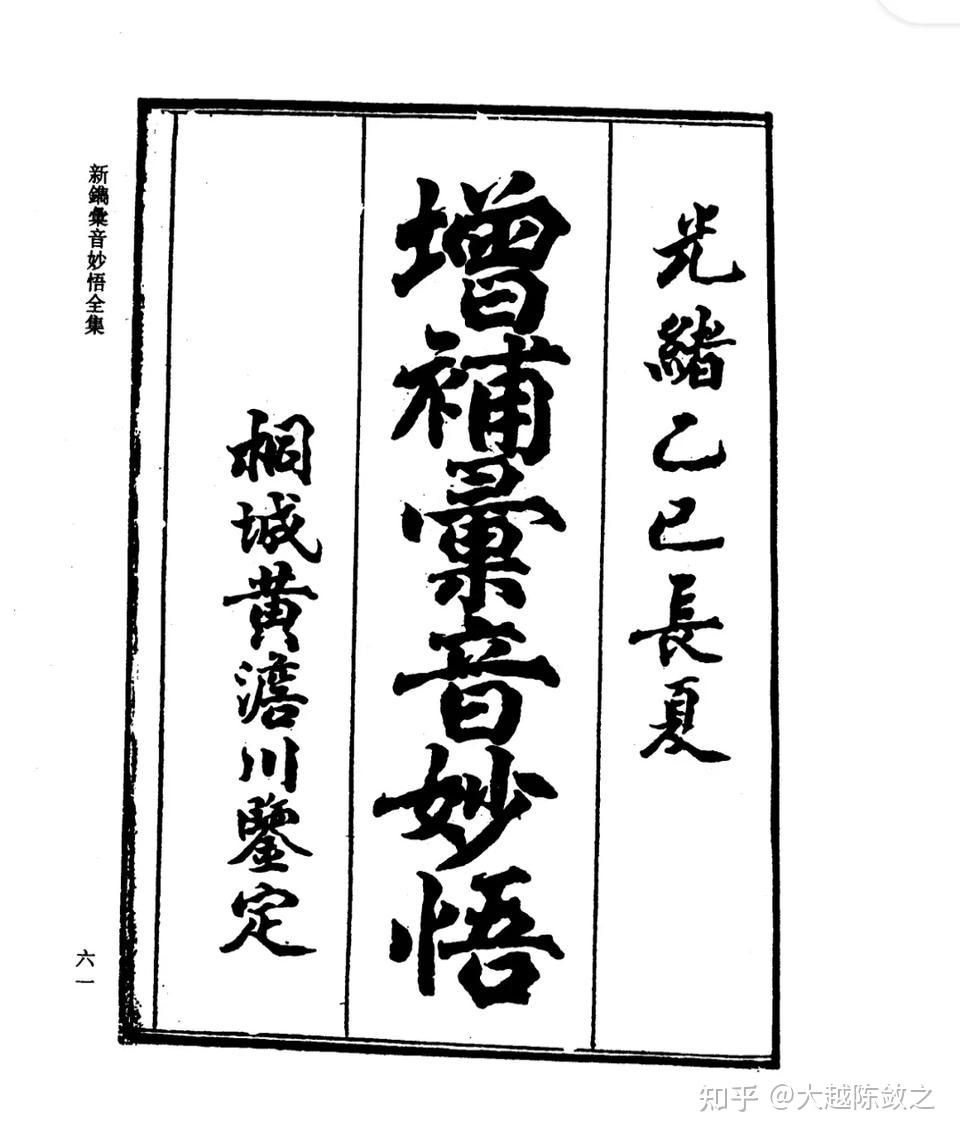 光緒乙巳長夏
增補彙音妙悟
桐城黃澹川鑒定
新鐫彙音妙悟全集
六一
知乎 @大越陈敛之